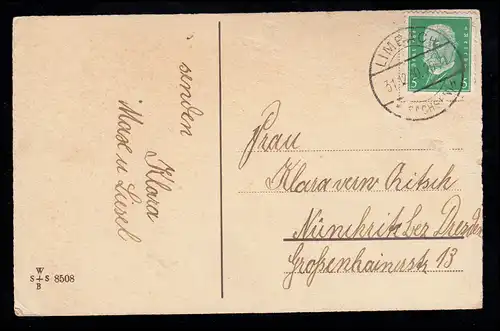 senden
Klara
Max u Liesel
W
S + S 8508
B
LIMBACH
5 5
Frau
Klara verw
Nünchritz bei Dresden
Großenhainerstr 13